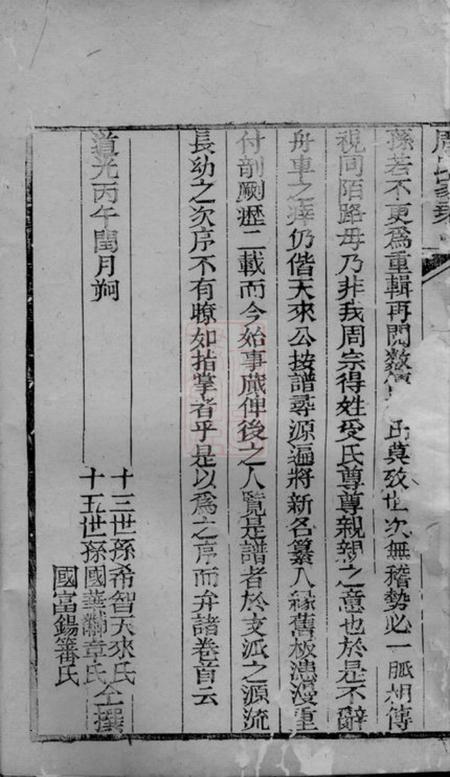 孫若不更為重輯再閱數 莫致世次無稽勢必一脈相傳
視同陌路毋乃非我周宗得姓受氏尊尊親親之意也於是不辭
舟車之瘁仍偕天來公按譜尋源遍將新名纂入緣舊板漶漫重
付剞劂歷二載而今始事蕆俾後之人覽是譜者於支派之源流
長幼之次序不有瞭如指掌者乎是以為之序而弁諸卷首云
道光丙午閏月
十三世孫希智天來氏
十五世孫國華黼章氏 仝撰
國富錫蕃氏